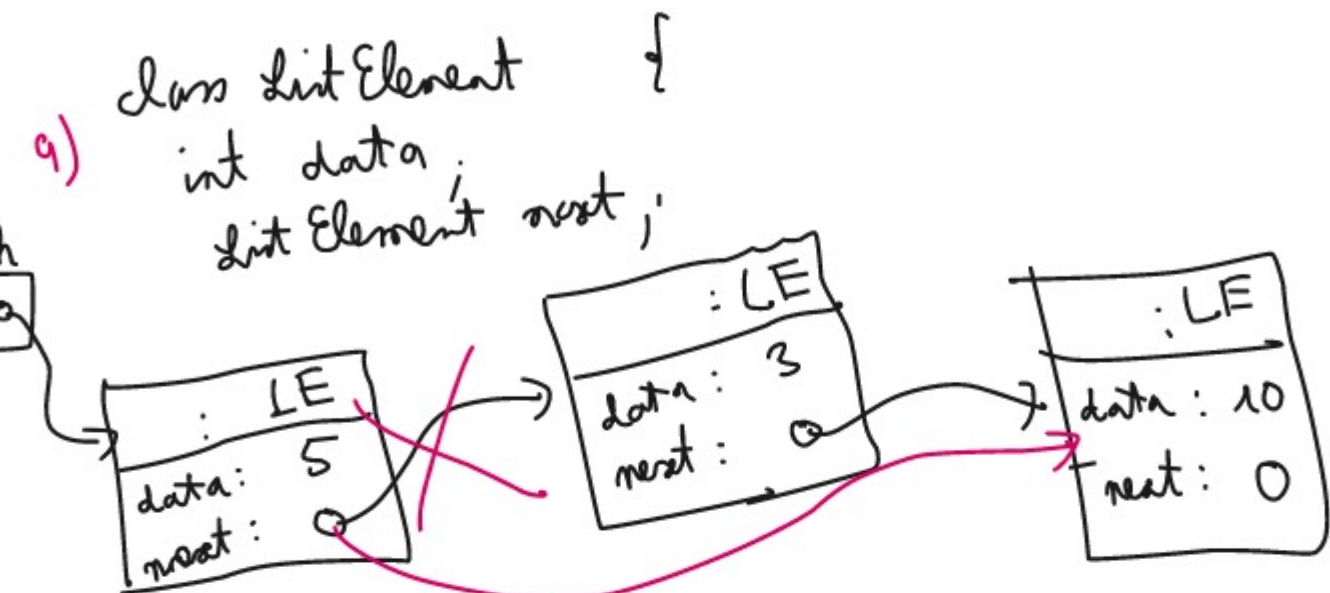 class ListElement {
a)
int data;
ListElement next;
h
: LE
data: 5
next:
: LE
data: 3
next:
: LE
data: 10
next: 0